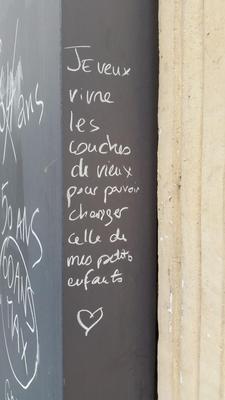 JE veux
vivre
les
couches
de vieux
pour pouvoir
changer
celle de
mes petits
enfants
ans
50 ANS